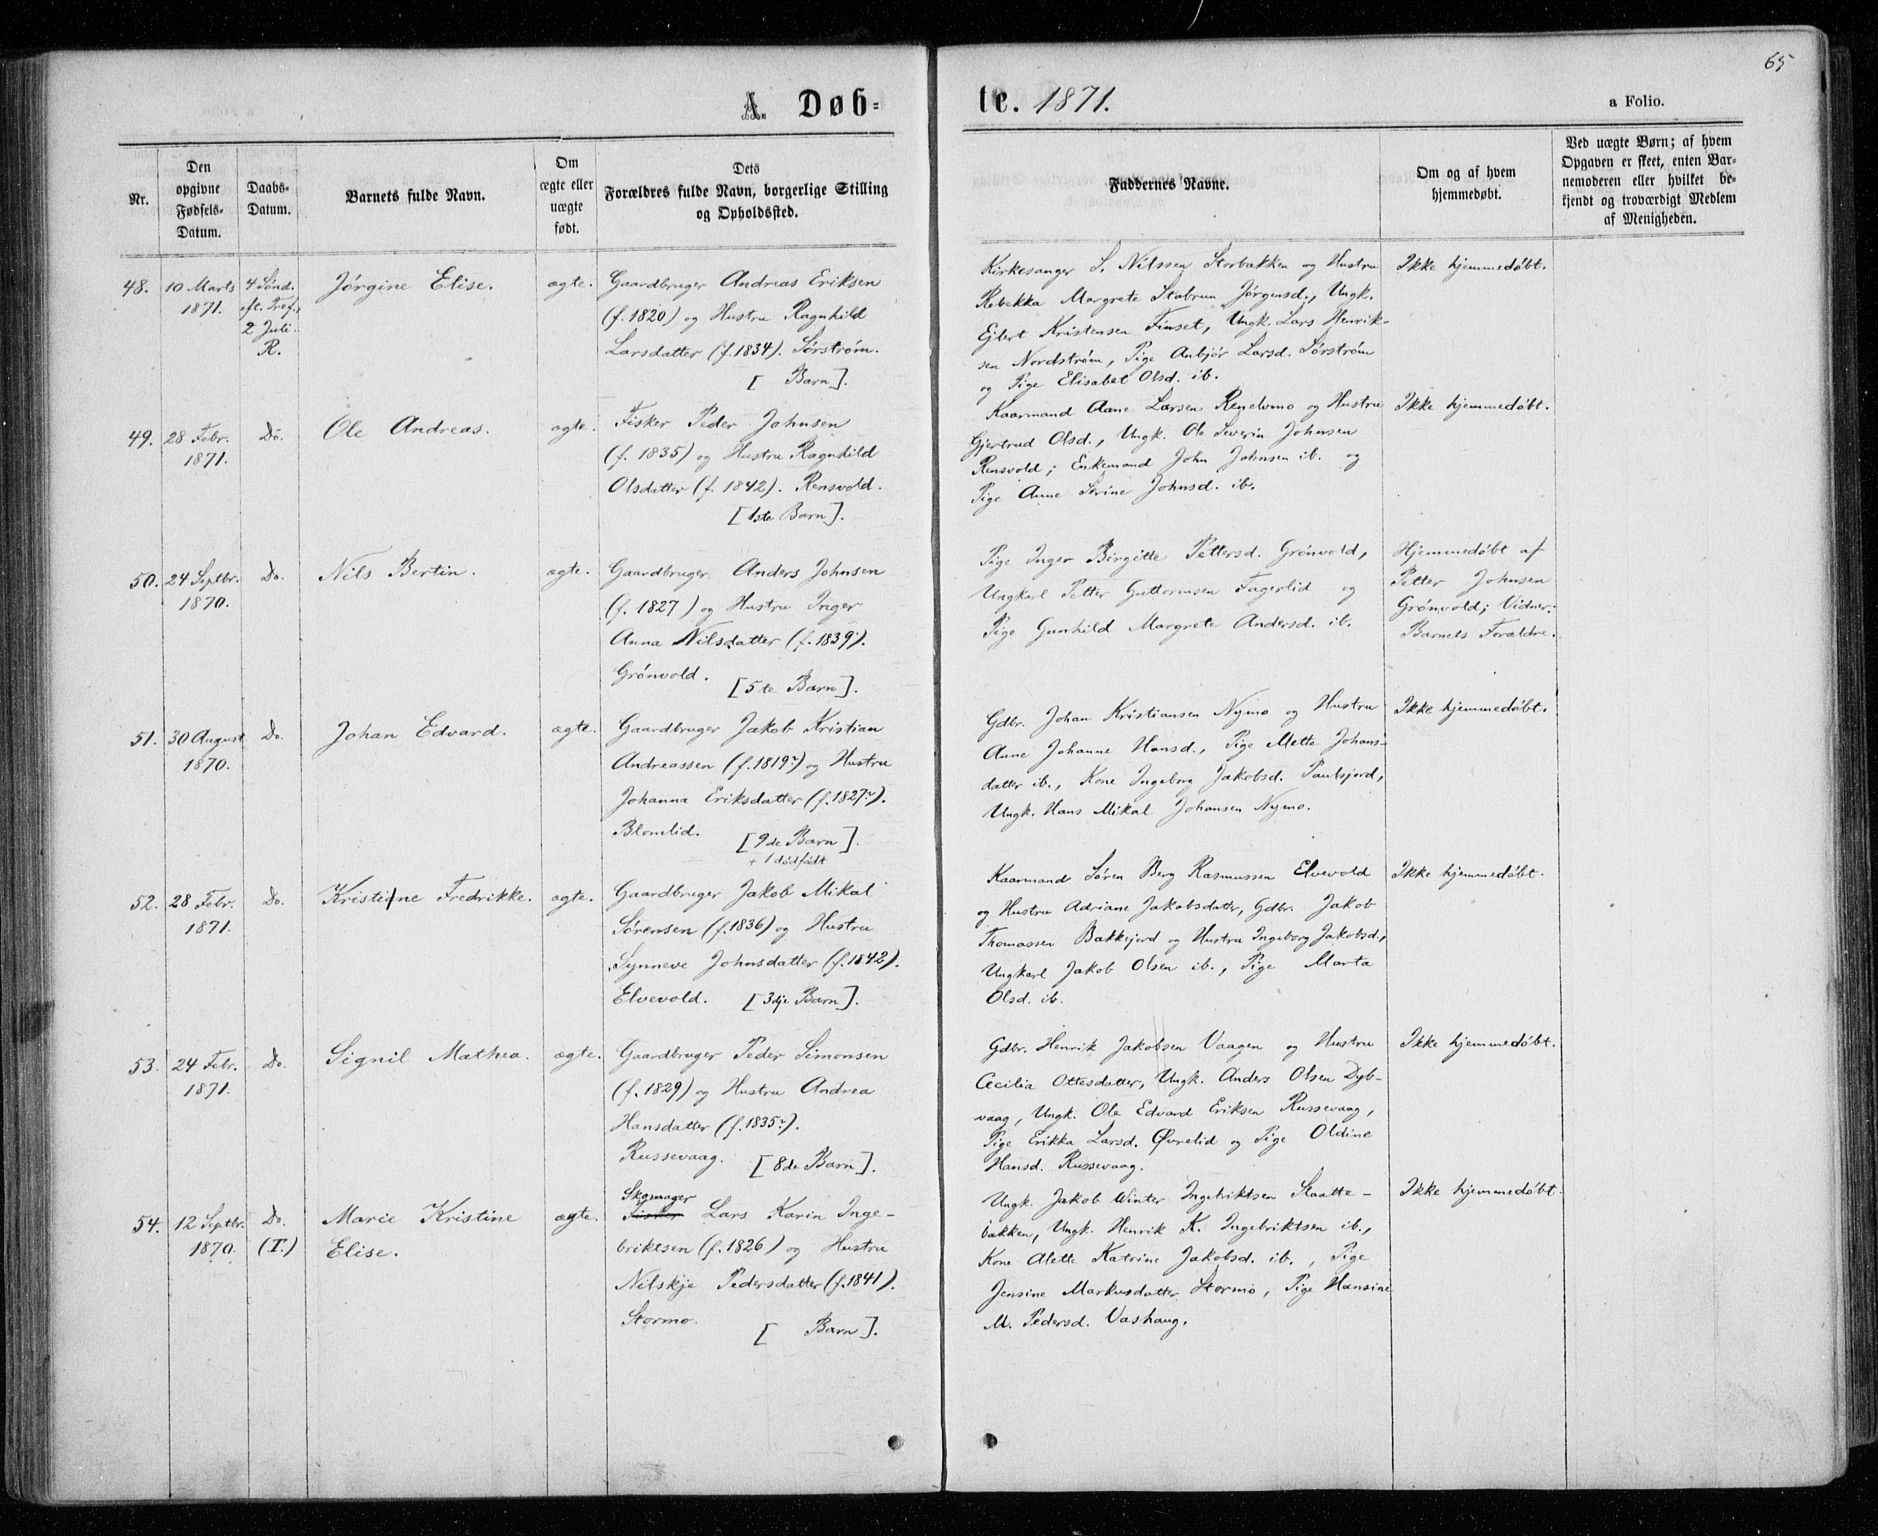 65
A. Døb-
te. 1871.
a Folio.
Nr.
Den
opgivne
Fødsels-
Datum.
Daabs-
Datum.
Barnets fulde Navn.
Om
ægte eller
uægte
født.
Dets
Forældres fulde Navn, borgerlige Stilling
og Opholdssted.
Faddernes Navne.
Om og af hvem
hjemmedøbt.
Ved uægte Børn; af hvem
Opgaven er skeet, enten Bar-
nemoderen eller hvilket be-
kjendt og troværdigt Medlem
af Menigheden.
48.
10 Marts
1871.
4 Sønd.
eft. Tref.,
2 Juli.
R.
Jørgine Elise.
ægte.
Gaardbruger Andreas Eriksen
(f. 1820) og Hustru Ragnhild
Larsdatter (f. 1834). Sørstrøm.
[ Barn].
Kirkesanger S. Nilssen Storbakken og Hustru
Rebekka Margrete Stabrun Jørgensd., Ungk.
Ejlert Kristensen Finset, Ungk. Lars Henrik-
sen Nordstrøm, Pige Anbjør Larsd. Sørstrøm
og Pige Elisabet Olsd. ib.
Ikke hjemmedøbt.
49.
28 Febr.
1871.
Do.
Ole Andreas.
ægte.
Fisker Peder Johnsen
(f. 1835) og Hustru Ragnhild
Olsdatter (f. 1842). Rensvold.
[1ste Barn].
Kaarmand Aane Larsen Renelvmo og Hustru
Gjertrud Olsd., Ungk. Ole Severin Johnsen
Rensvold; Enkemand John Johnsen ib. og
Pige Anne Serine Johnsd. ib.
Ikke hjemmedøbt.
50.
24 Septbr.
1870.
Do.
Nils Bertin.
ægte.
Gaardbruger Anders Johnsen
(f. 1827) og Hustru Inger
Anna Nilsdatter (f. 1839).
Grønvold.
[5te Barn].
Pige Inger Birgitte Pettersd. Grønvold,
Ungkarl Petter Guttormsen Fagerlid og
Pige Gunhild Margrete Andersd. ib.
Hjemmedøbt af
Petter Johnsen
Grønvold; Vidner:
Barnets Forældre.
51.
30 August
1870.
Do.
Johan Edvard.
ægte.
Gaardbruger Jakob Kristian
Andreassen (f. 1819?) og Hustru
Johanna Eriksdatter (f. 1827?).
Blomlid.
[9de Barn].
+ 1 dødfødt
Gdbr. Johan Kristiansen Nymo og Hustru
Anne Johanne Hansd., Pige Mette Johans-
datter ib., Kone Ingeborg Jakobsd. Paulsjord,
Ungk. Hans Mikal Johansen Nymo.
Ikke hjemmedøbt.
52.
28 Febr.
1871.
Do.
Kristine Fredrikke.
ægte.
Gaardbruger Jakob Mikal
Sørensen (f. 1836) og Hustru
Synneve Johnsdatter (f. 1842).
Elvevold. [3dje Barn].
Kaarmand Søren Berg Rasmussen Elvevold
og Hustru Adriane Jakobsdatter, Gdbr. Jakob
Thomassen Bakkejord og Hustru Ingeborg Jakobsd.,
Ungkarl Jakob Olsen ib., Pige Marta
Olsd. ib.
Ikke hjemmedøbt.
53.
24 Febr.
1871.
Do.
Signil Mathea.
ægte.
Gaardbruger Peder Simonsen
(f. 1829) og Hustru Andrea
Hansdatter (f. 1835?).
Russevaag. [8de Barn].
Gdbr. Henrik Jakobsen Vaagen og Hustru
Cecilia Ottesdatter, Ungk. Anders Olsen Dyb-
vaag, Ungk. Ole Edvard Eriksen Russevaag,
Pige Erikka Larsd. Øvrelid og Pige Oldine
Hansd. Russevaag.
Ikke hjemmedøbt.
54.
12 Septbr.
1870.
Do.
(T.)
Marie Kristine
Elise.
ægte.
Skomager
Fisker Lars Karin Inge-
briktsen (f. 1826) og Hustru
Nilskje Pedersdatter (f. 1841).
Stormo.
[ Barn].
Ungk. Jakob Winter Ingebriktsen Slaatte-
bakken, Ungk. Henrik K. Ingebriktsen ib.,
Kone Alette Katrine Jakobsd. ib., Pige
Jensine Markusdatter Stormo, Pige Hansine
M. Pedersd. Vashaug.
Ikke hjemmedøbt.